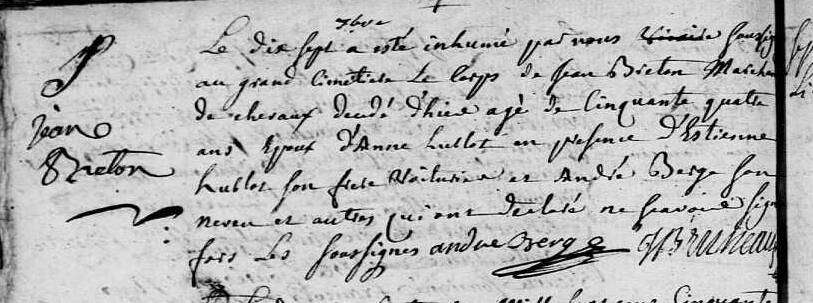 S
Jean
Breton
7bre
Le dix sept a esté inhumé par nous Vicaire soussig
au grand Cimetiere Le Corps de Jean Breton Marchan
de chevaux decedé d'hier agé de Cinquante quatre
ans Epoux d'Anne hullot en presence d'Estienne
hullot son frere Voiturier et André Berge son
neveu et autres qui ont declaré ne scavoir sign
fors Les soussignes andre Berge Bruneau